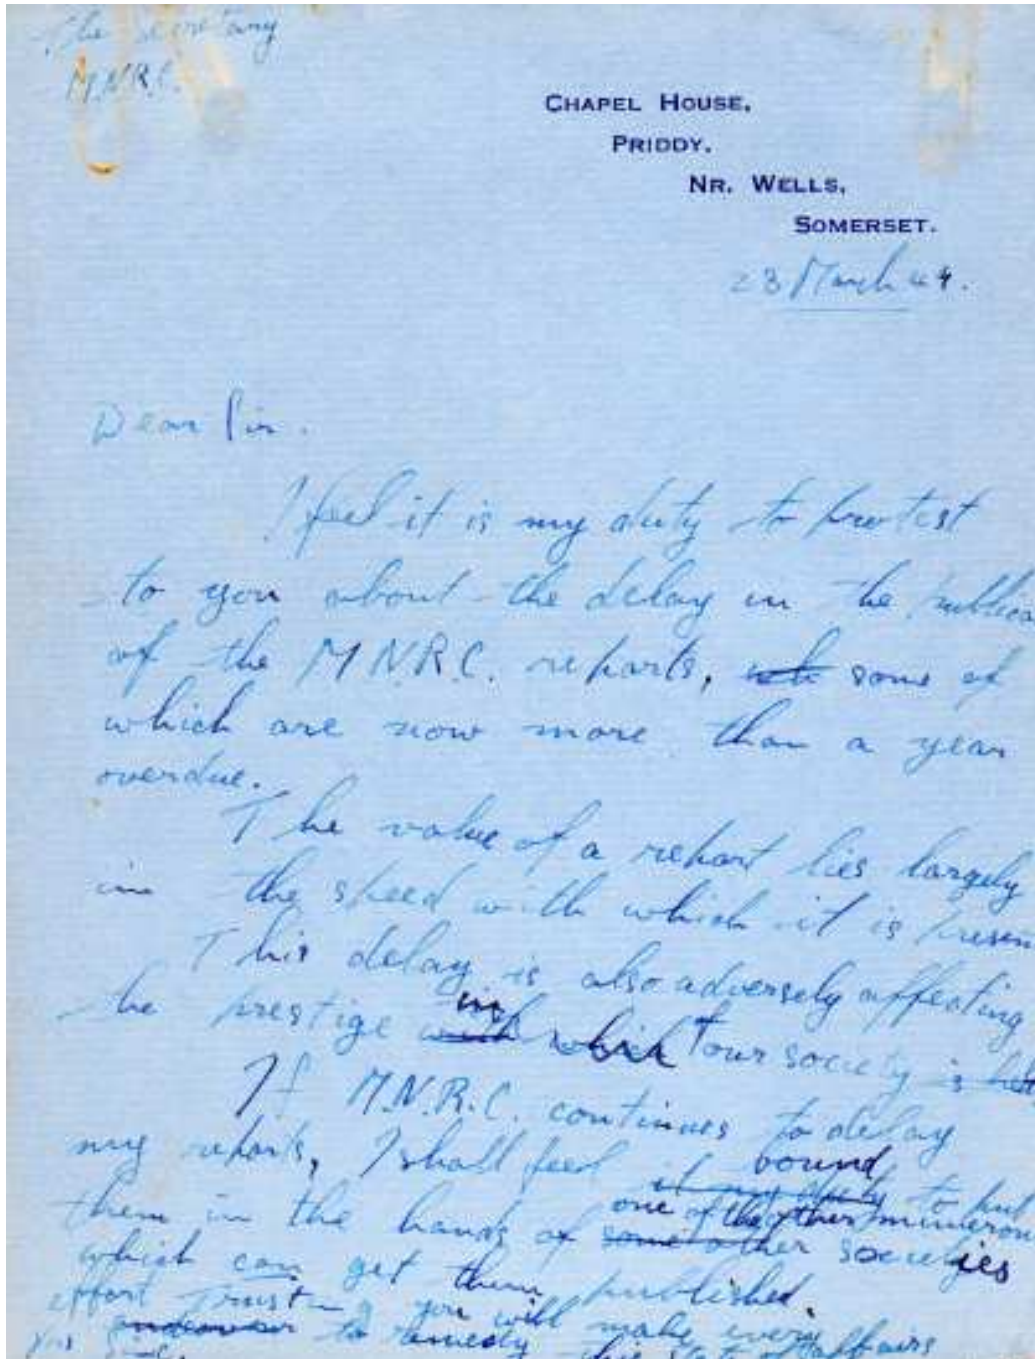 The secretary
M.N.R.C.
CHAPEL HOUSE,
PRIDDY.
NR. WELLS,
SOMERSET.
23 March 49.
Dear Sir.
I feel it is my duty to protest
to you about the delay in the publica
of the M.N.R.C. reports, some of
which are now more than a year
overdue.
The value of a report lies largely
in the speed with which it is presen
This delay is also adversely affecting
the prestige in which our society is held
If M.N.R.C. continues to delay
my reports, I shall feel bound
it my duty to put
them in the hands of one of the other numerous
some other societies
which can get them published.
Trusting you will make every
effort endeavour to remedy this state of affairs
Yrs